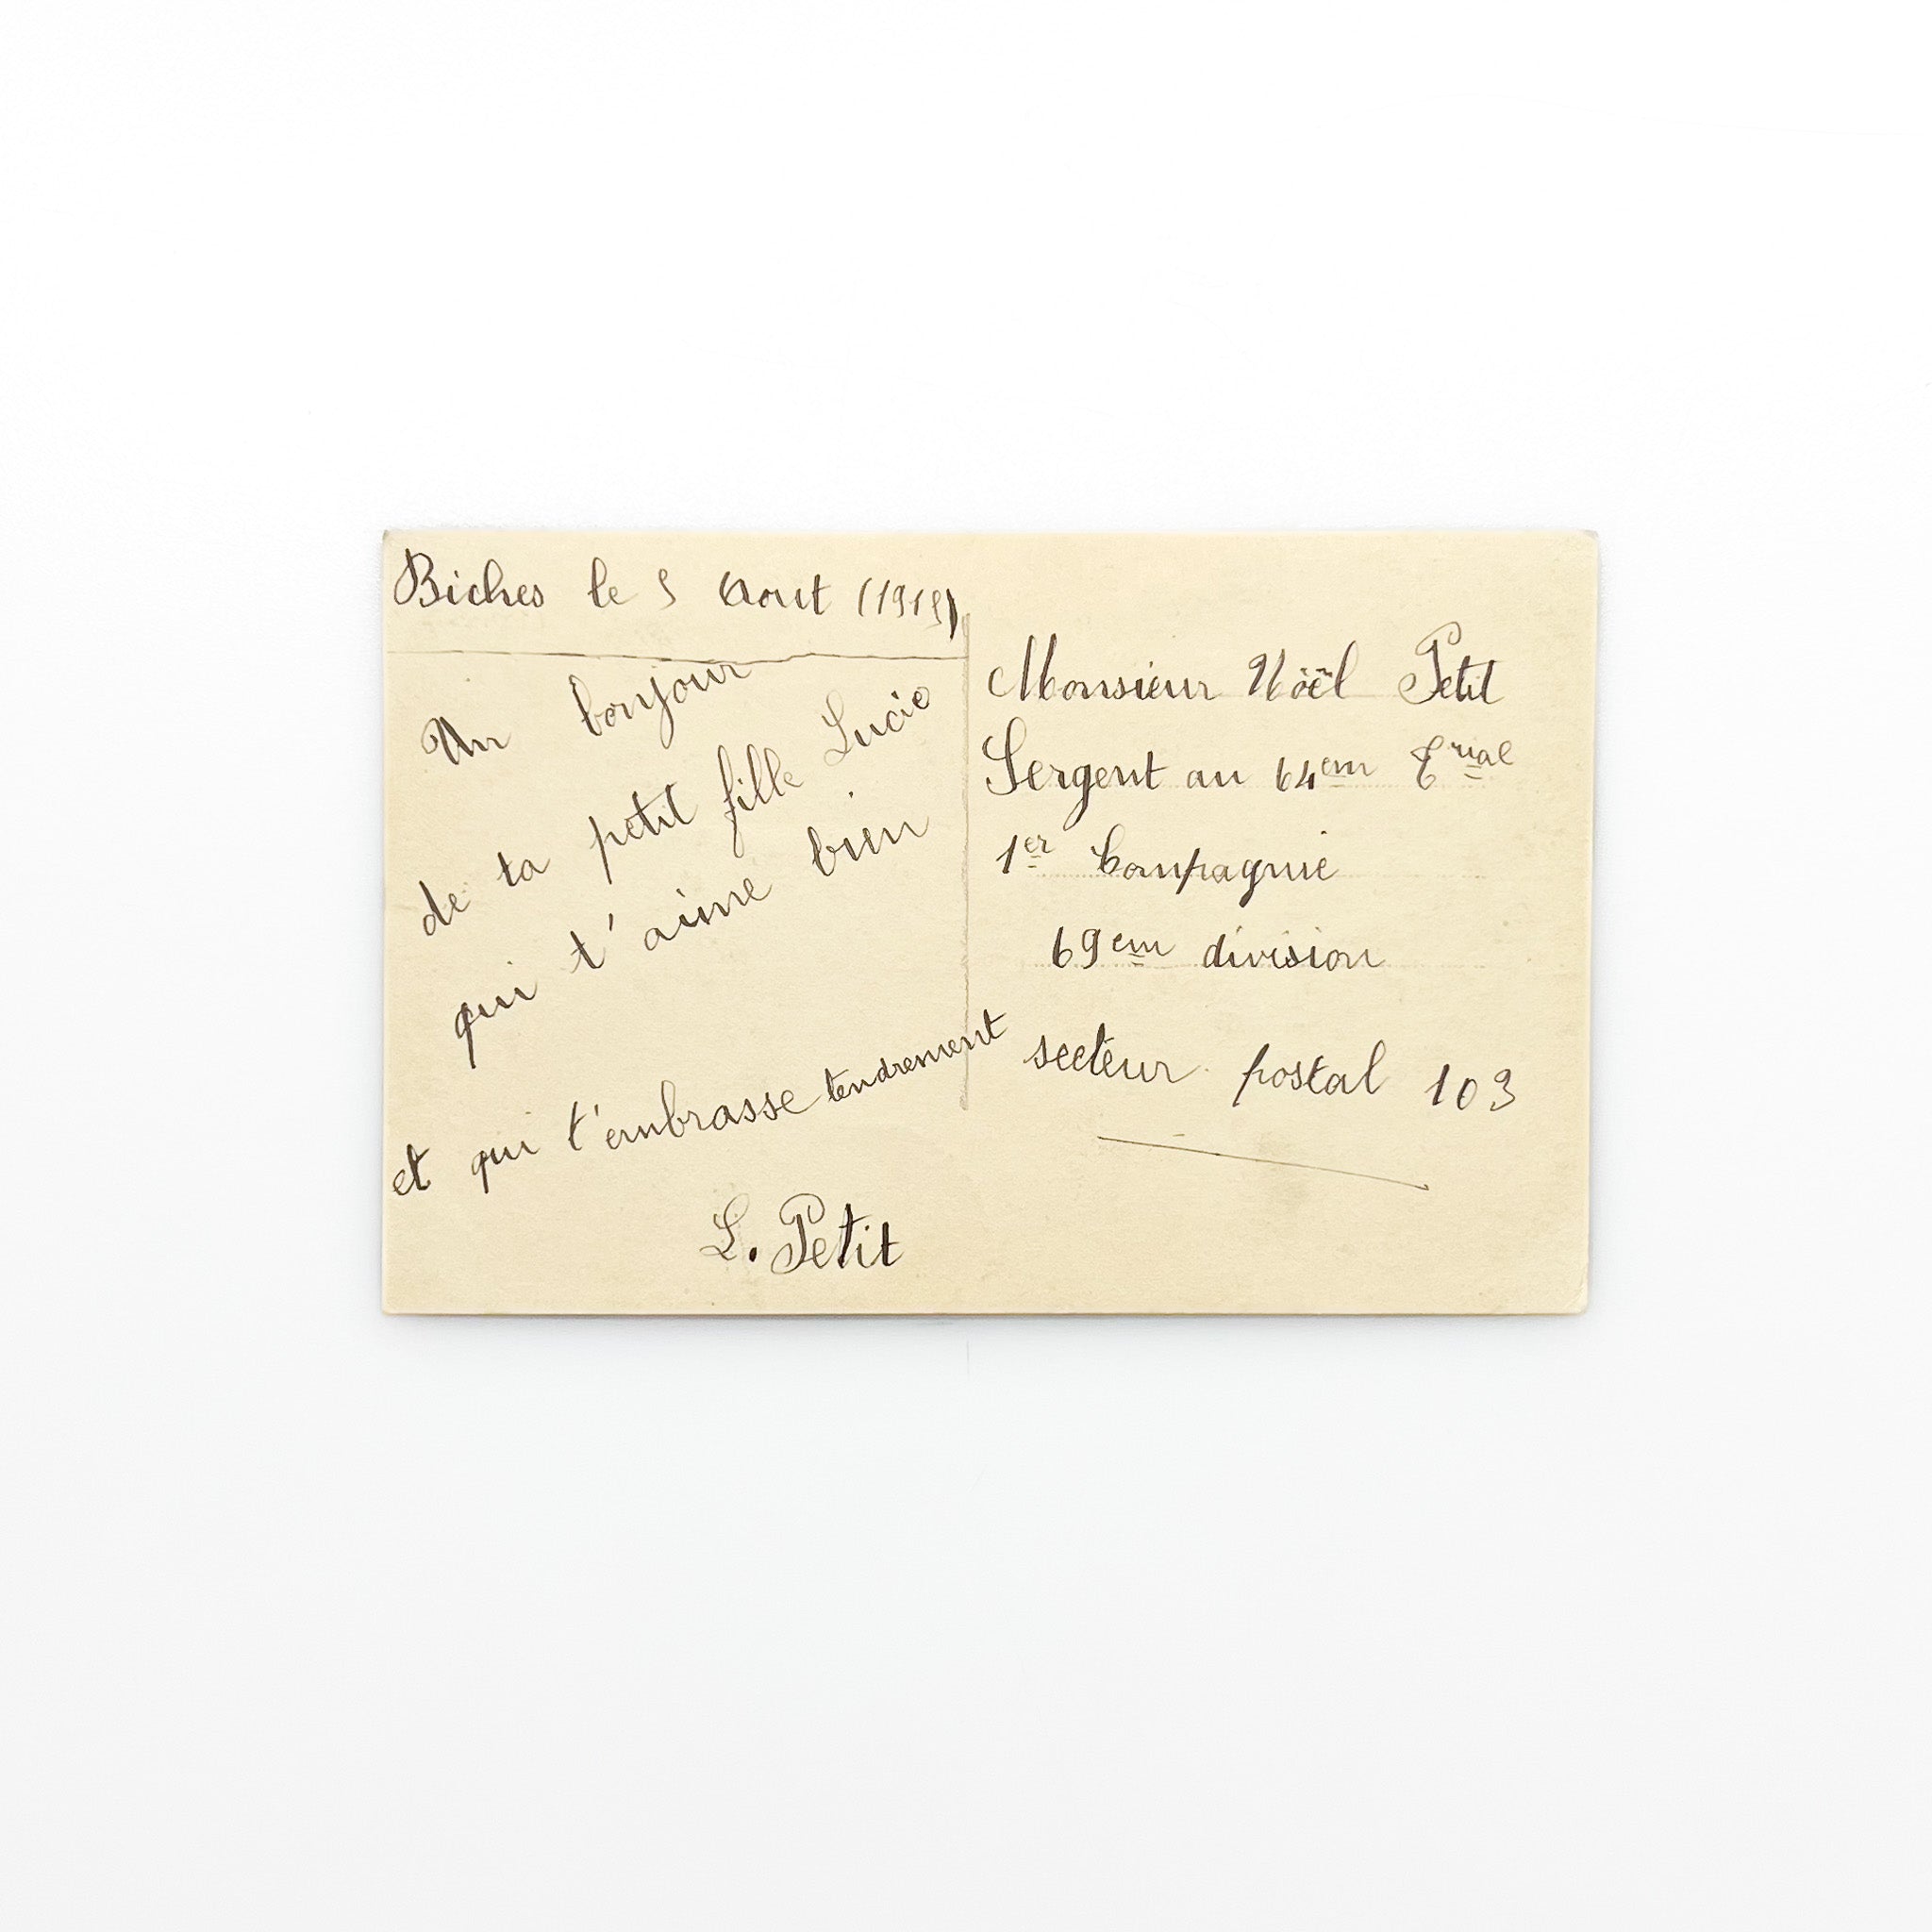 Biches le 5 Aout (1915)
Un bonjour
de ta petit fille Lucie
qui t'aime bien
et qui t'embrasse tendrement
L. Petit
Monsieur Nöël Petit
Sergent au 64em Erial
1er Compagnie
69em division
secteur postal 103